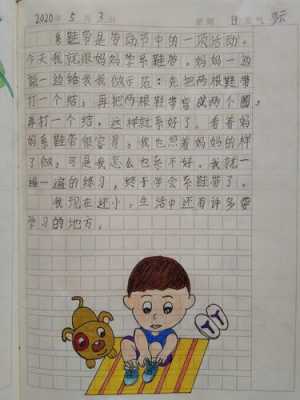 2020年5月3日 星期日 天气
系鞋带是劳动节中的一项活动。
今天我就跟妈妈学系鞋带。妈妈一边
说一边给我做示范：先把两根鞋带
打一个结，再把两根鞋带弯成两个圈，
再打一个结，这样就系好了。看着妈
妈系鞋带很容易，我也照着妈妈的样
子做，可是我怎么也系不好。我就一
遍一遍的练习，终于学会系鞋带了。
我现在还小，生活中还有许多要
学习的地方。